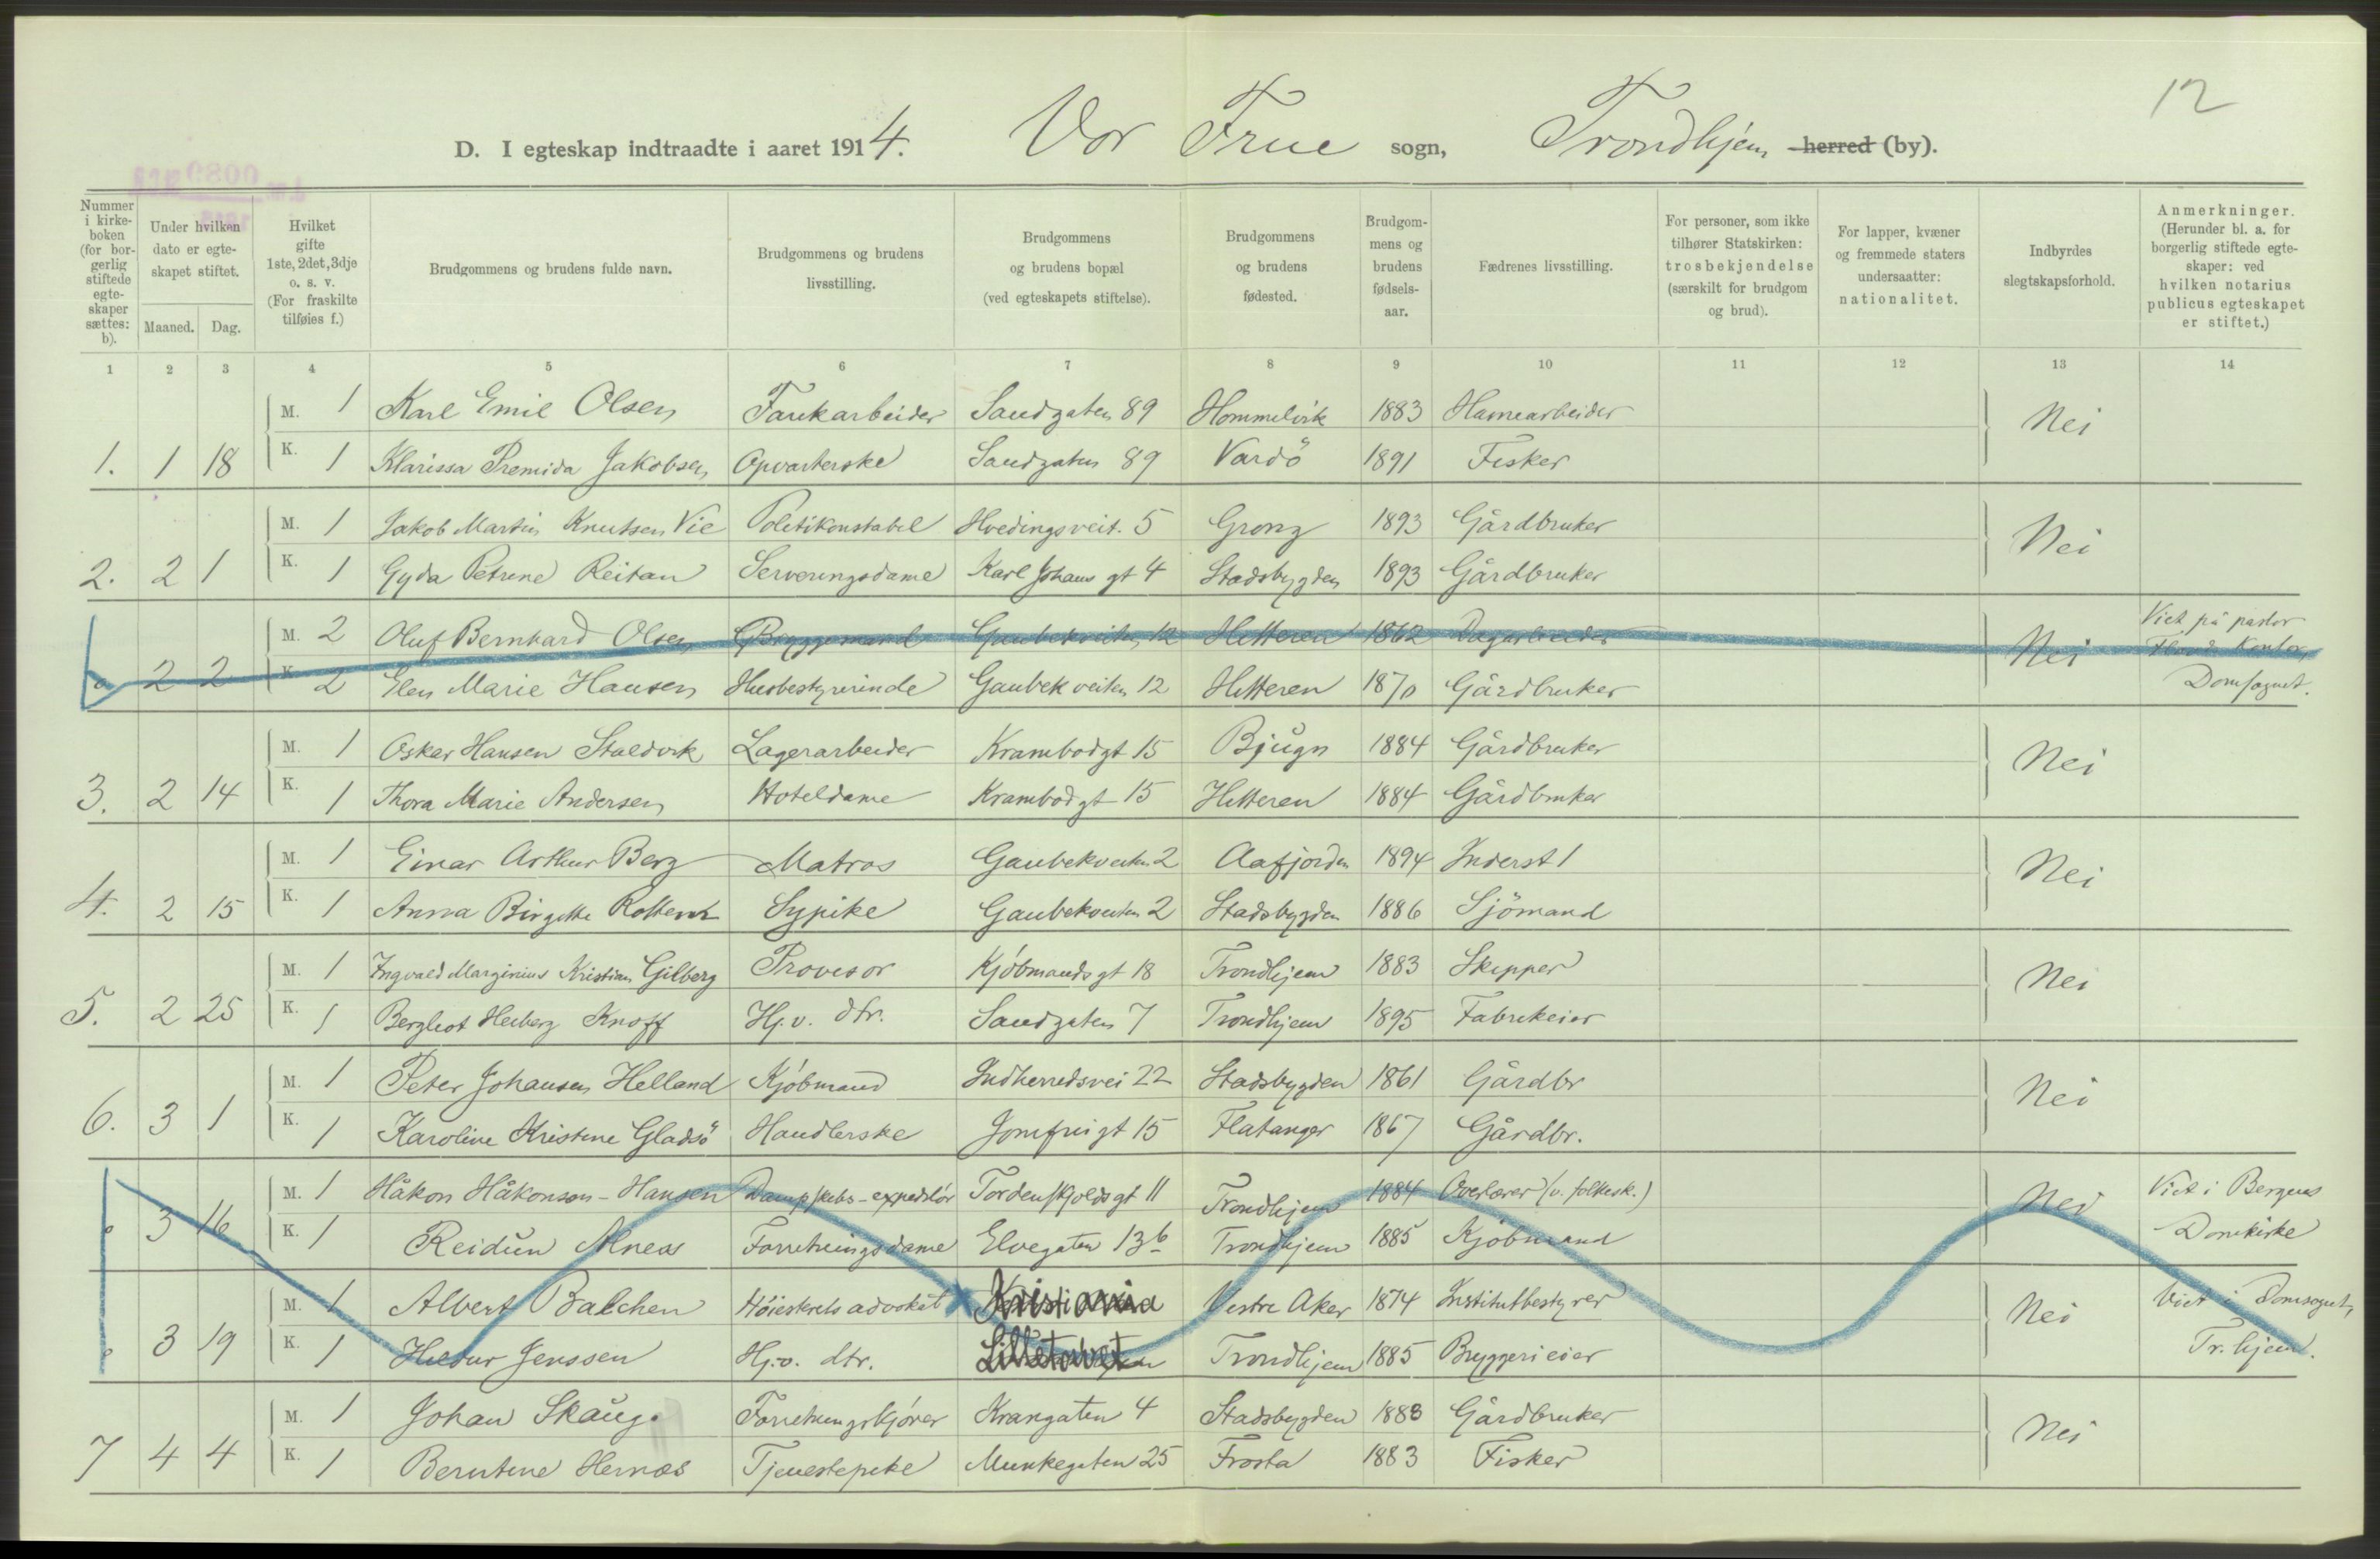 12
D. I egteskap indtraadte i aaret 1914. Vor Frue sogn, Trondhjem herred (by).
Nummer i kirkeboken (for borgerlig stiftede egteskaper sættes: b).
Under hvilken dato er egteskapet stiftet.
Maaned. Dag.
Hvilket gifte 1ste, 2det, 3dje o. s. v. (For fraskilte tilføies f.)
Brudgommens og brudens fulde navn.
Brudgommens og brudens livsstilling.
Brudgommens og brudens bopæl (ved egteskapets stiftelse).
Brudgommens og brudens fødested.
Brudgommens og brudens fødselsaar.
Fædrenes livsstilling.
For personer, som ikke tilhører Statskirken: trosbekjendelse (særskilt for brudgom og brud).
For lapper, kvæner og fremmede staters undersaatter: nationalitet.
Indbyrdes slegtskapsforhold.
Anmerkninger. (Herunder bl. a. for borgerlig stiftede egteskaper: ved hvilken notarius publicus egteskapet er stiftet.)
1 2 3 4 5 6 7 8 9 10 11 12 13 14
M. 1 Karl Emil Olsen Sandgaten 89 Hommelvik 1883 Havnearbeider Nei
1. 1 18 K. 1 Klarissa Premida Jakobsen Opvarterske Sandgaten 89 Vardö 1891 Fisker
M. 1 Jakob Martin Knutsen Vie Politikonstabel Hvedingsveit. 5 Grong 1893 Gårdbruker Nei
2. 2 1 K. 1 Gyda Petrine Reitan Serveringsdame Karl Johans gt 4 Stadsbygden 1893 Gårdbruker
M. 2 Oluf Bernhard Olsen Bryggemand Gaubekveiten 12 Hitteren 1862 Dagarbeider Nei Viet på pastor kontor,
2 2 K. 2 Elen Marie Hansen Husbestyrerinde Gaubekveiten 12 Hitteren 1870 Gårdbruker Domsognet.
M. 1 Oskar Hansen Staldvik Lagerarbeider Krambodgt 15 Bjugn 1884 Gårdbruker Nei
3. 2 14 K. 1 Thora Marie Andersen Hoteldame Krambodgt 15 Hitteren 1884 Gårdbruker
M. 1 Einar Arthur Berg Matros Gaubekveiten 2 Aafjorden 1894 Inderst 1 Nei
4. 2 15 K. 1 Anna Birgitte Sypike Gaubekveiten 2 Stadsbygden 1886 Sjömand
M. 1 Ingvald Marginius Kristian Gilberg Provisor Kjøbmandsgt 18 Trondhjem 1883 Skipper Nei
5. 2 25 K. 1 Bergliot Heiberg Knoff Hj.v. dtr. Sandgaten 7 Trondhjem 1895 Fabrikeier
M. 1 Peter Johansen Helland Kjøbmand Indherredsvei 22 Stadsbygden 1861 Gårdbr Nei
6. 3 1 K. 1 Karoline Kristine Gladsö Handlerske Jomfrugt 15 Flatanger 1867 Gårdbr.
M. 1 Håkon Håkonson-Hansen Dampskibs-expeditör Tordenskjoldsgt 11 Trondhjem 1884 Overlærer (v. folkesk.) Nei Viet i Bergens
3 16 K. 1 Reidun Alnæs Forretningsdame Elvegaten 13b Trondhjem 1885 Kjöbmand Domkirke
M. 1 Albert Balchen Höiesterets advokat Kristiania Vestre Aker 1874 Institutbestyrer Nei Viet i Domsognet,
3 19 K. 1 Hildur Jenssen Hj.v. dtr. Lilletorvet Trondhjem 1885 Bryggerieier Tr.hjem.
M. 1 Johan Skaug. Forretningskjörer Krangaten 4 Stadsbygden 1883 Gårdbruker Nei
7 4 4 K. 1 Berntine Hernæs Tjenestepike Munkegaten 25 Frosta 1883 Fisker